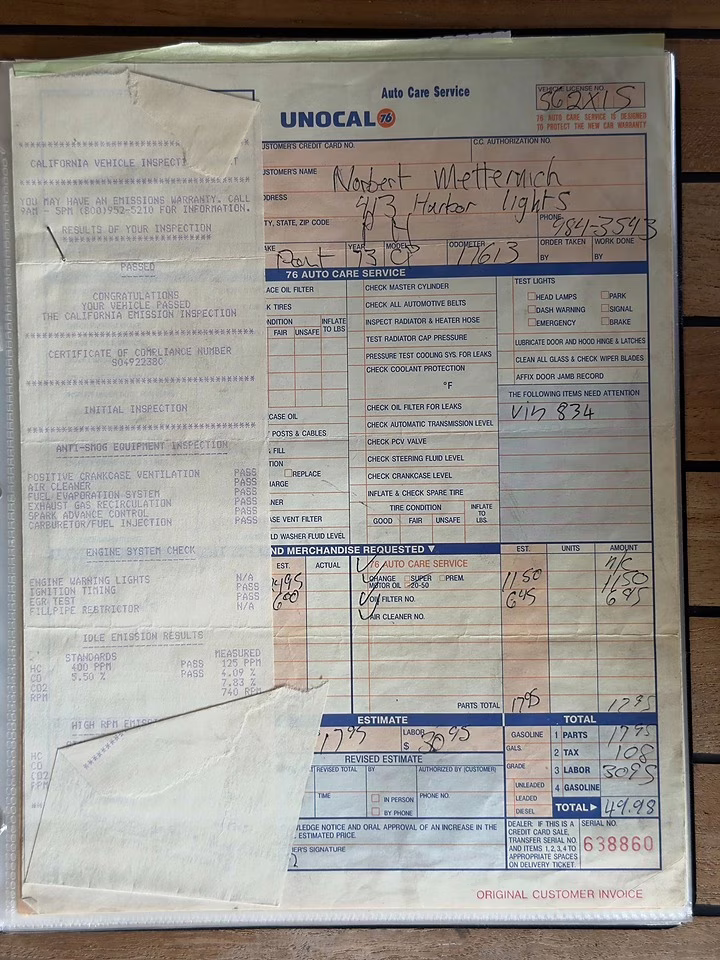 Auto Care Service
UNOCAL 76
VEHICLE LICENSE NO.
562X1S
76 AUTO CARE SERVICE IS DESIGNED
TO PROTECT THE NEW CAR WARRANTY
CALIFORNIA VEHICLE INSPECTI
YOU MAY HAVE AN EMISSIONS WARRANTY. CALL
9AM - 5PM (800)952-5210 FOR INFORMATION.
RESULTS OF YOUR INSPECTION
PASSED
CONGRATULATIONS
YOUR VEHICLE PASSED
THE CALIFORNIA EMISSION INSPECTION
CERTIFICATE OF COMPLIANCE NUMBER
SO492238C
INITIAL INSPECTION
ANTI-SMOG EQUIPMENT INSPECTION
POSITIVE CRANKCASE VENTILATION PASS
AIR CLEANER PASS
FUEL EVAPORATION SYSTEM PASS
EXHAUST GAS RECIRCULATION PASS
SPARK ADVANCE CONTROL PASS
CARBURETOR/FUEL INJECTION PASS
ENGINE SYSTEM CHECK
ENGINE WARNING LIGHTS N/A
IGNITION TIMING PASS
EGR TEST PASS
FILLPIPE RESTRICTOR N/A
IDLE EMISSION RESULTS
STANDARDS MEASURED
HC 400 PPM PASS 125 PPM
CO 5.50 % PASS 4.09 %
CO2 7.83 %
RPM 740 RPM
HIGH RPM EMISS
HC
CO
CO2
RPM
USTOMER'S CREDIT CARD NO. C.C. AUTHORIZATION NO.
USTOMER'S NAME
Norbert Metternich
DDRESS
413 Harbor lights
TY, STATE, ZIP CODE
PHONE
984-3543
AKE YEAR MODEL ODOMETER ORDER TAKEN BY WORK DONE BY
73 17613
76 AUTO CARE SERVICE
ACE OIL FILTER
K TIRES
NDITION INFLATE TO LBS
FAIR UNSAFE
CASE OIL
POSTS & CABLES
& FILL
TION
REPLACE
ARGE
NER
ASE VENT FILTER
LD WASHER FLUID LEVEL
CHECK MASTER CYLINDER
CHECK ALL AUTOMOTIVE BELTS
INSPECT RADIATOR & HEATER HOSE
TEST RADIATOR CAP PRESSURE
PRESSURE TEST COOLING SYS. FOR LEAKS
CHECK COOLANT PROTECTION
°F
CHECK OIL FILTER FOR LEAKS
CHECK AUTOMATIC TRANSMISSION LEVEL
CHECK PCV VALVE
CHECK STEERING FLUID LEVEL
CHECK CRANKCASE LEVEL
INFLATE & CHECK SPARE TIRE
TIRE CONDITION INFLATE TO LBS.
GOOD FAIR UNSAFE
TEST LIGHTS
HEAD LAMPS PARK
DASH WARNING SIGNAL
EMERGENCY BRAKE
LUBRICATE DOOR AND HOOD HINGE & LATCHES
CLEAN ALL GLASS & CHECK WIPER BLADES
AFFIX DOOR JAMB RECORD
THE FOLLOWING ITEMS NEED ATTENTION
Vin 834
ND MERCHANDISE REQUESTED ▼ EST. UNITS AMOUNT
EST. ACTUAL 76 AUTO CARE SERVICE n/c
CHANGE MOTOR OIL SUPER 20-50 PREM. 1150 1150
600 OIL FILTER NO. 645 645
AIR CLEANER NO.
PARTS TOTAL 1795 1795
ESTIMATE
1795 LABOR $ 3095
REVISED ESTIMATE
REVISED TOTAL BY AUTHORIZED BY (CUSTOMER)
TIME IN PERSON PHONE NO.
BY PHONE
WLEDGE NOTICE AND ORAL APPROVAL OF AN INCREASE IN THE
ESTIMATED PRICE.
MER'S SIGNATURE
TOTAL
GASOLINE 1 PARTS 1795
GALS. 2 TAX 108
GRADE 3 LABOR 3095
UNLEADED 4 GASOLINE
LEADED
DIESEL
TOTAL ▶ 49.98
DEALER: IF THIS IS A
CREDIT CARD SALE,
TRANSFER SERIAL NO.
AND ITEMS 1, 2, 3, 4 TO
APPROPRIATE SPACES
ON DELIVERY TICKET.
SERIAL NO.
638860
ORIGINAL CUSTOMER INVOICE